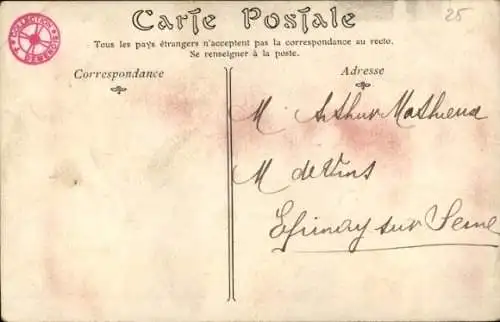 25
Carte Postale
Tous les pays étrangers n'acceptent pas la correspondance au recto.
Se renseigner à la poste.
COLLECTION
Correspondance
Adresse
M. Arthur Mathieu
M de Vins
Epinay sur Seine